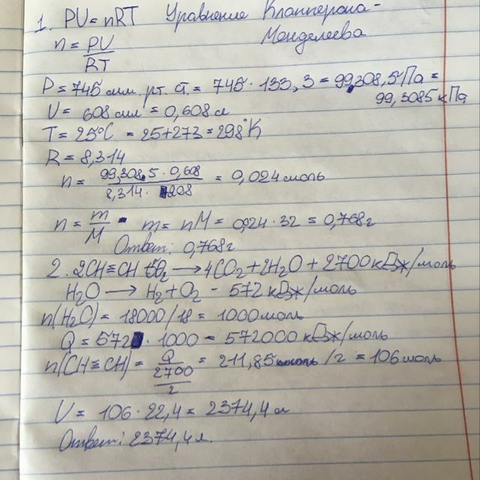 1. PV = nRT Уравнение Клапперона-
Менделеева
n = PV/RT
P = 745 мм. рт. ст. = 745 · 133,3 = 99308,5 Па =
99,3085 кПа
V = 608 мл = 0,608 л
T = 25°C = 25+273 = 298°K
R = 8,314
n = 99,308,5 · 0,608 / 8,314 · 298 = 0,024 моль
n = m/M m = nM = 0,24 · 32 = 0,768 г
Ответ: 0,768 г
2. 2CH≡CH → 4CO₂ + 2H₂O + 2700 кДж/моль
H₂O → H₂ + O₂ - 572 кДж/моль
n(H₂O) = 18000/18 = 1000 моль
Q = 572 · 1000 = 572000 кДж/моль
n(CH≡CH) = Q / 2700/2 = 211,85 моль /2 = 106 моль
V = 106 · 22,4 = 2374,4 л
Ответ: 2374,4 л.